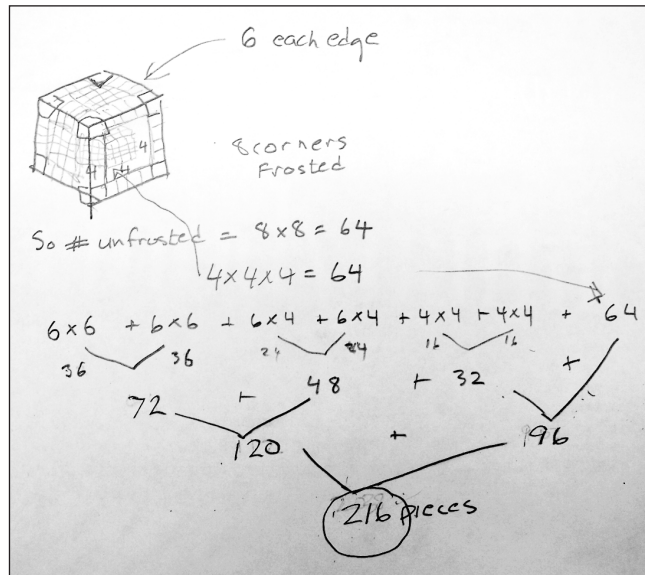 6 each edge
8 corners
Frosted
4
4 4
So # unfrosted = 8 x 8 = 64
4 x 4 x 4 = 64
6 x 6 + 6 x 6 + 6 x 4 + 6 x 4 + 4 x 4 + 4 x 4 + 64
36 36 24 24 16 16
72 + 48 + 32 +
120 + 196
216 pieces